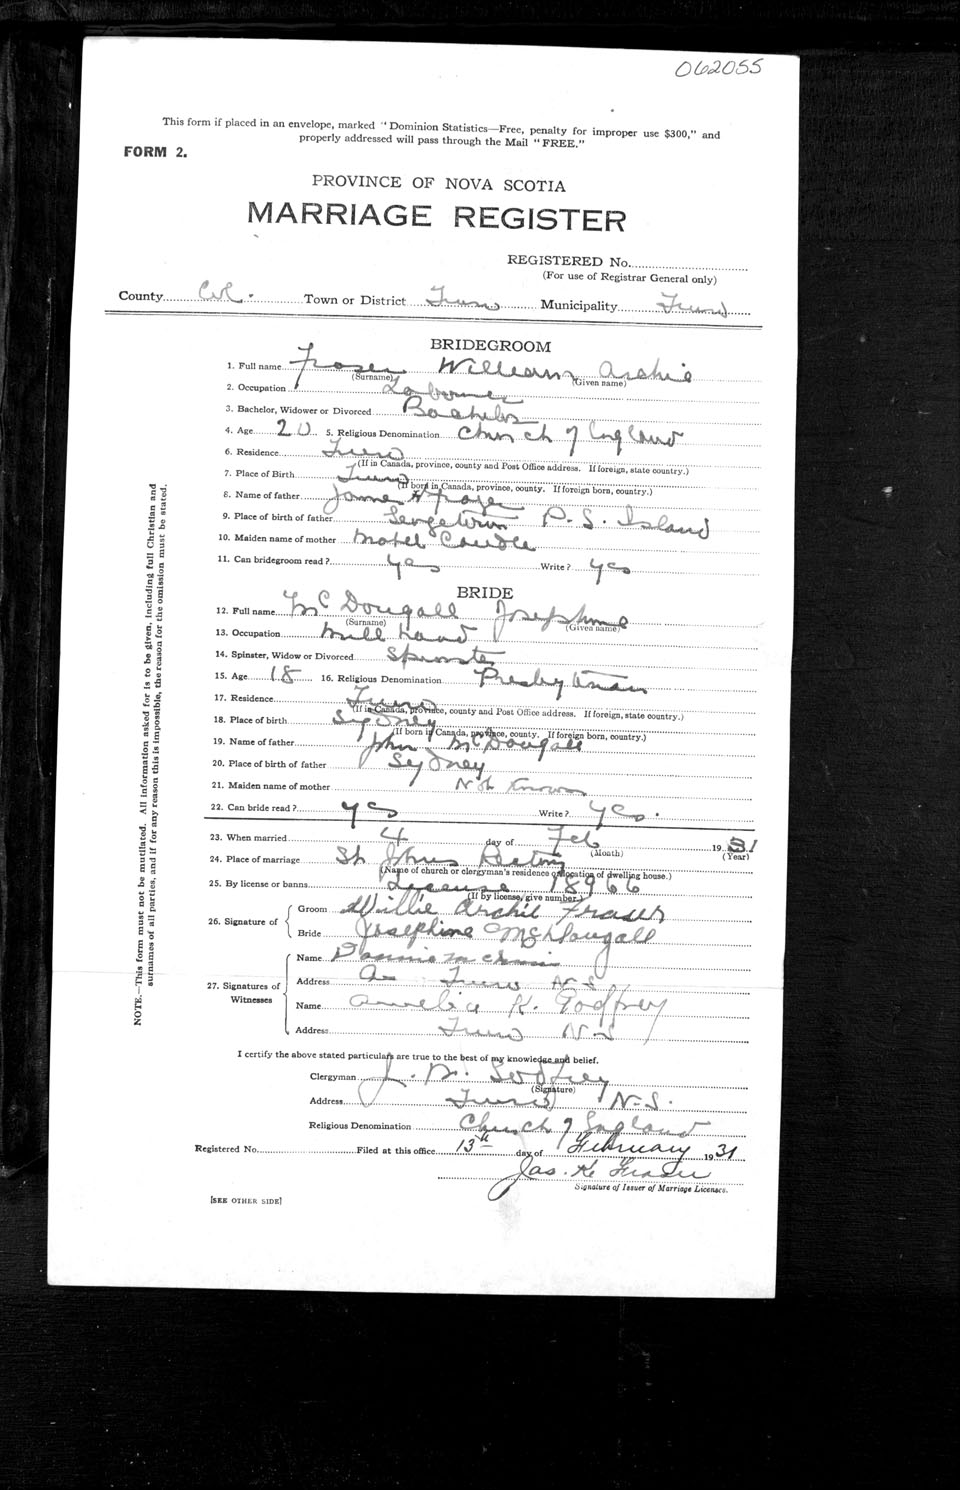 062055
This form if placed in an envelope, marked "Dominion Statistics—Free, penalty for improper use $300," and
properly addressed will pass through the Mail "FREE."
FORM 2.
PROVINCE OF NOVA SCOTIA
MARRIAGE REGISTER
REGISTERED No.
(For use of Registrar General only)
County Col. Town or District Truro Municipality Truro
BRIDEGROOM
1. Full name Fraser William Archie
(Surname) (Given name)
2. Occupation Labourer
3. Bachelor, Widower or Divorced Bachelor
4. Age 20 5. Religious Denomination Church of England
6. Residence Truro
(If in Canada, province, county and Post Office address. If foreign, state country.)
7. Place of Birth Truro
(If born in Canada, province, county. If foreign born, country.)
8. Name of father James H Fraser
9. Place of birth of father Georgetown P. S. Island
10. Maiden name of mother Mabel
11. Can bridegroom read? yes Write? yes
BRIDE
12. Full name McDougall Josephine
(Surname) (Given name)
13. Occupation Mill hand
14. Spinster, Widow or Divorced Spinster
15. Age 18 16. Religious Denomination Presbyterian
17. Residence Truro
(If in Canada, province, county and Post Office address. If foreign, state country.)
18. Place of birth Sydney
(If born in Canada, province, county. If foreign born, country.)
19. Name of father John McDougall
20. Place of birth of father Sydney
21. Maiden name of mother Not Known
22. Can bride read? yes Write? yes.
23. When married 4 day of Feb 1931
(Month) (Year)
24. Place of marriage St Johns Rectory
(Name of church or clergyman's residence or location of dwelling house.)
25. By license or banns License 18966
(If by license, give number.)
26. Signature of Groom Willie Archie Fraser
Bride Josephine McDougall
27. Signatures of Witnesses Name
Address Truro N-S
Name Amelia K. Godfrey
Address Truro N-S
I certify the above stated particulars are true to the best of my knowledge and belief.
Clergyman J. Godfrey
(Signature)
Address Truro N-S.
Religious Denomination Church of England
Registered No. Filed at this office 13th day of February 1931
Jas. K. Fraser
Signature of Issuer of Marriage Licenses.
[SEE OTHER SIDE]
NOTE.—This form must not be mutilated. All information asked for is to be given, including full Christian and
surnames of all parties, and if for any reason this is impossible, the reason for the omission must be stated.